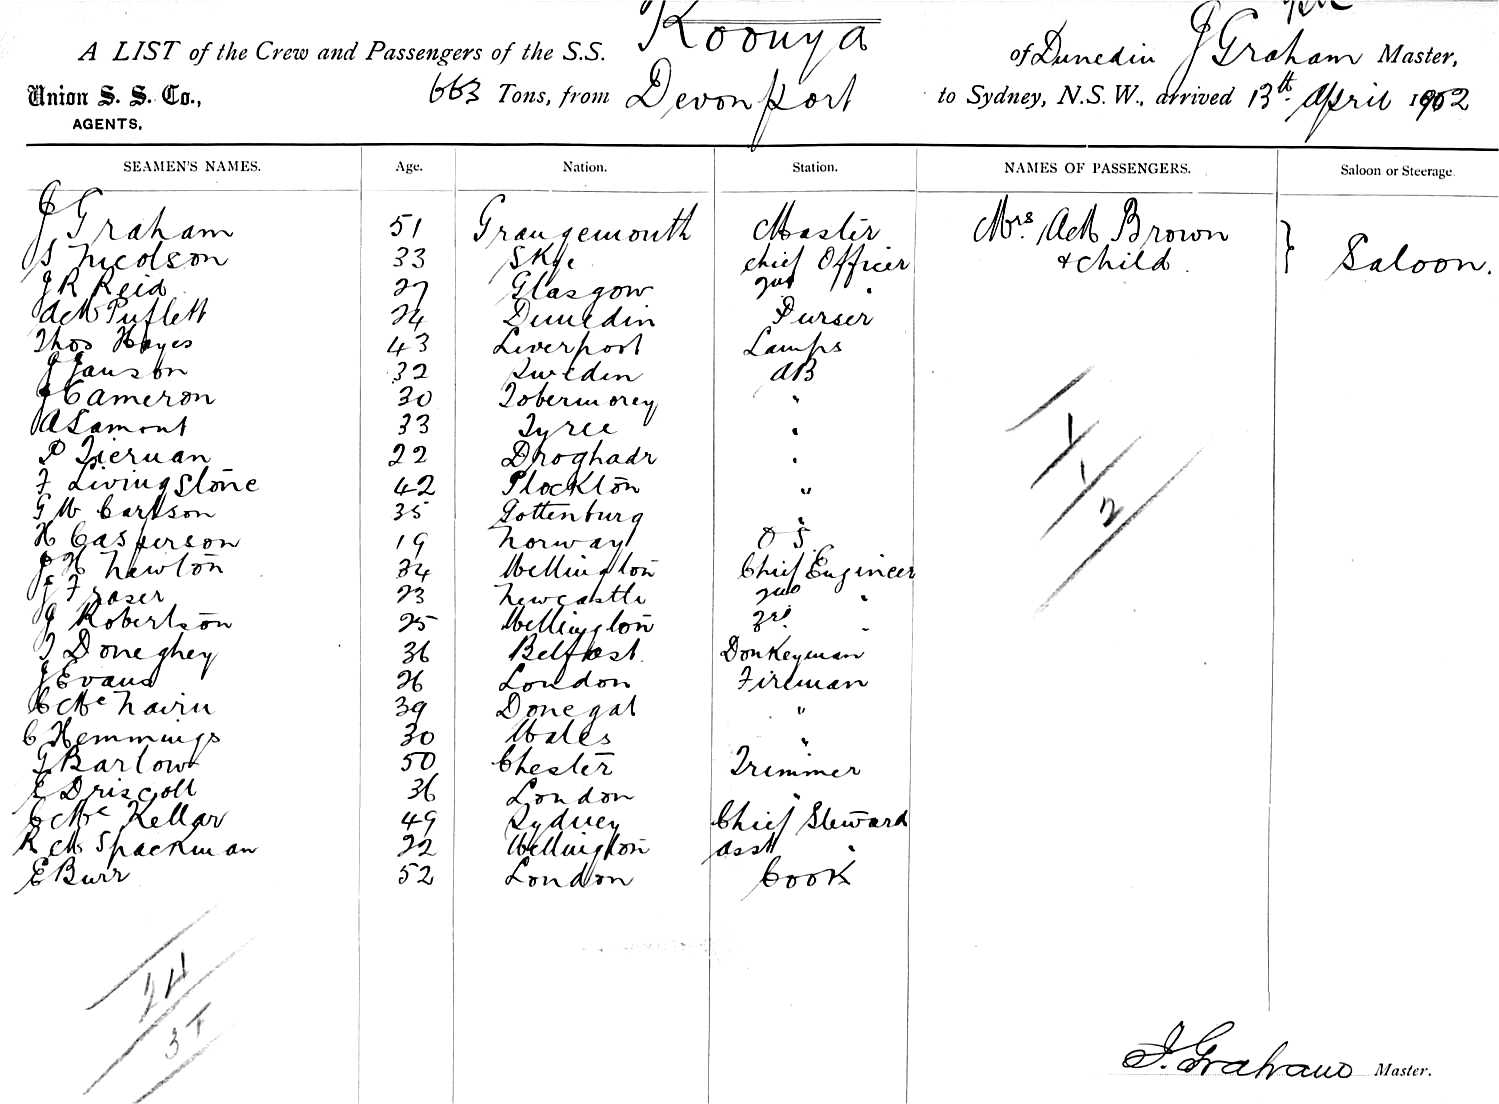 A LIST of the Crew and Passengers of the S.S. Koonya of Dunedin J Graham Master,
Union S. S. Co., 663 Tons, from Devonport to Sydney, N.S.W., arrived 13th April 1902
AGENTS,
SEAMEN'S NAMES. Age. Nation. Station. NAMES OF PASSENGERS. Saloon or Steerage
J Graham 51 Grangemouth Master Mrs. AM Brown Saloon.
S Nicolson 33 Skye Chief Officer & Child
J R Reid 27 Glasgow 2nd "
24 Dunedin Purser
Thos Hayes 43 Liverpool Lamps
J Janson 32 Sweden AB
J Cameron 30 Tobermorey "
A Lamont 33 Tyree "
P Tiernan 22 Droghadr "
F Livingstone 42 Plockton "
G W Carlson 35 Gottenburg "
H Casperson 19 Norway O S
J H Newton 34 Wellington Chief Engineer
J Fraser 23 Newcastle 2nd "
J Robertson 25 Wellington 3rd "
T Doneghey 36 Belfast Donkeyman
J Evans 26 London Fireman
C McNairn 39 Donegal "
C Hemmings 30 Wales "
G Barlow 50 Chester Trimmer
E Driscoll 36 London "
C McKellar 49 Sydney Chief Steward
R M Spackman 22 Wellington asst "
E Burr 52 London Cook
1
1
2
24
3
J. Graham Master.